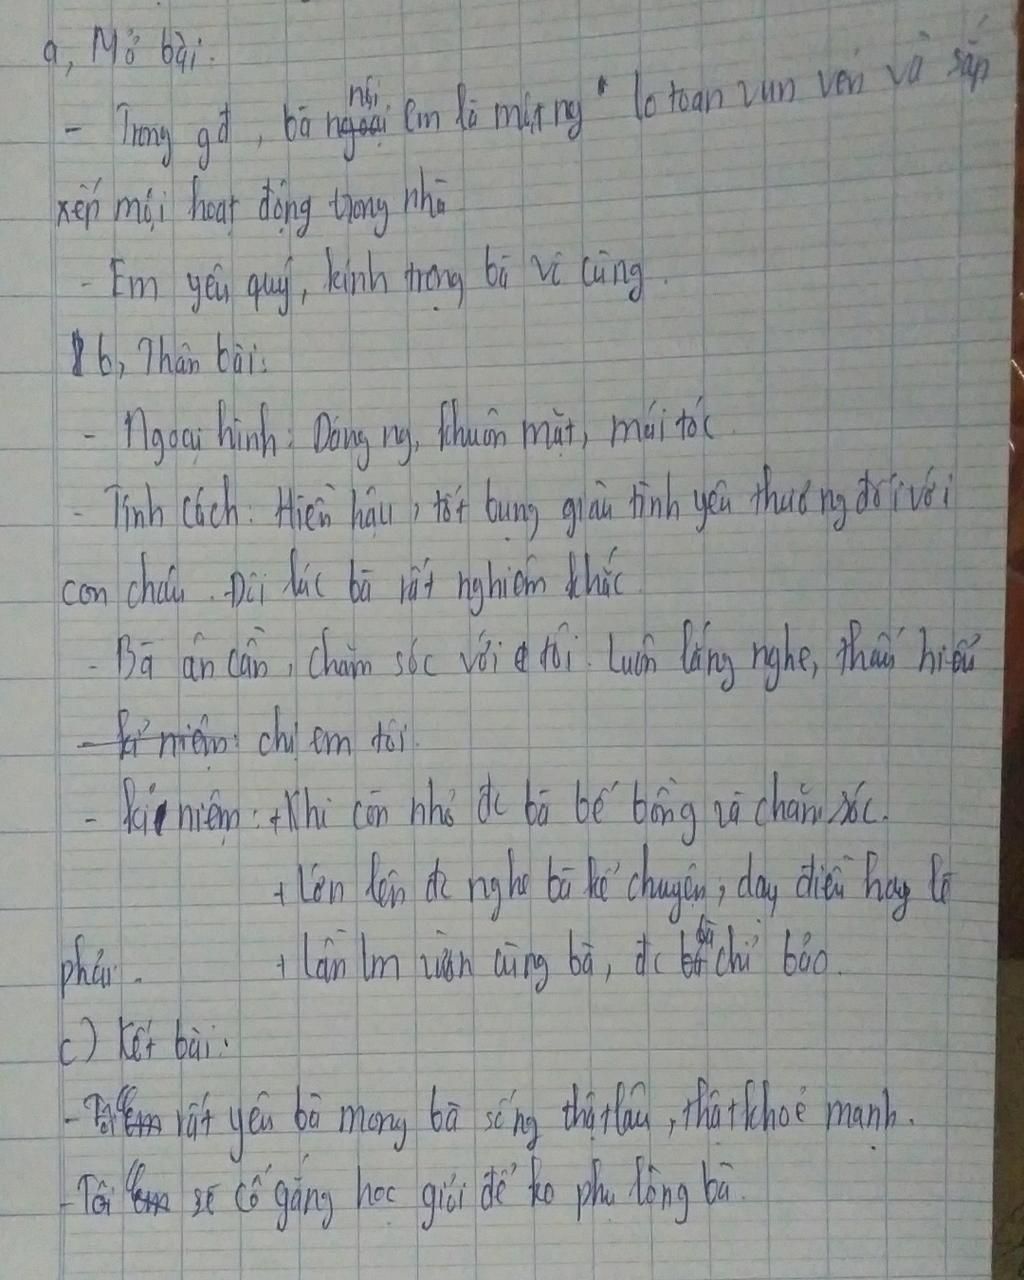 a, Mở bài:
- Trong gđ, bà nội em là một ng lo toan vun vén và sắp
xếp mọi hoạt động trong nhà
- Em yêu quý, kính trọng bà vô cùng.
b, Thân bài:
- Ngoại hình: Dáng ng, khuôn mặt, mái tóc
- Tính cách: Hiền hậu, tốt bụng giàu tình yêu thương đối với
con cháu. Đôi lúc bà rất nghiêm khắc.
- Bà ân cần, chăm sóc với tôi. Luôn lắng nghe, thấu hiểu
chị em tôi.
- Kỉ niệm: + Khi còn nhỏ đc bà bế bồng và chăm sóc.
+ Lớn lên đc nghe bà kể chuyện, dạy điều hay lẽ
phải. + Lần lm vườn cùng bà, đc bà chỉ bảo.
c) Kết bài:
- Tôi rất yêu bà mong bà sống thật lâu, thật khoẻ mạnh.
- Tôi sẽ cố gắng học giỏi để ko phụ lòng bà.